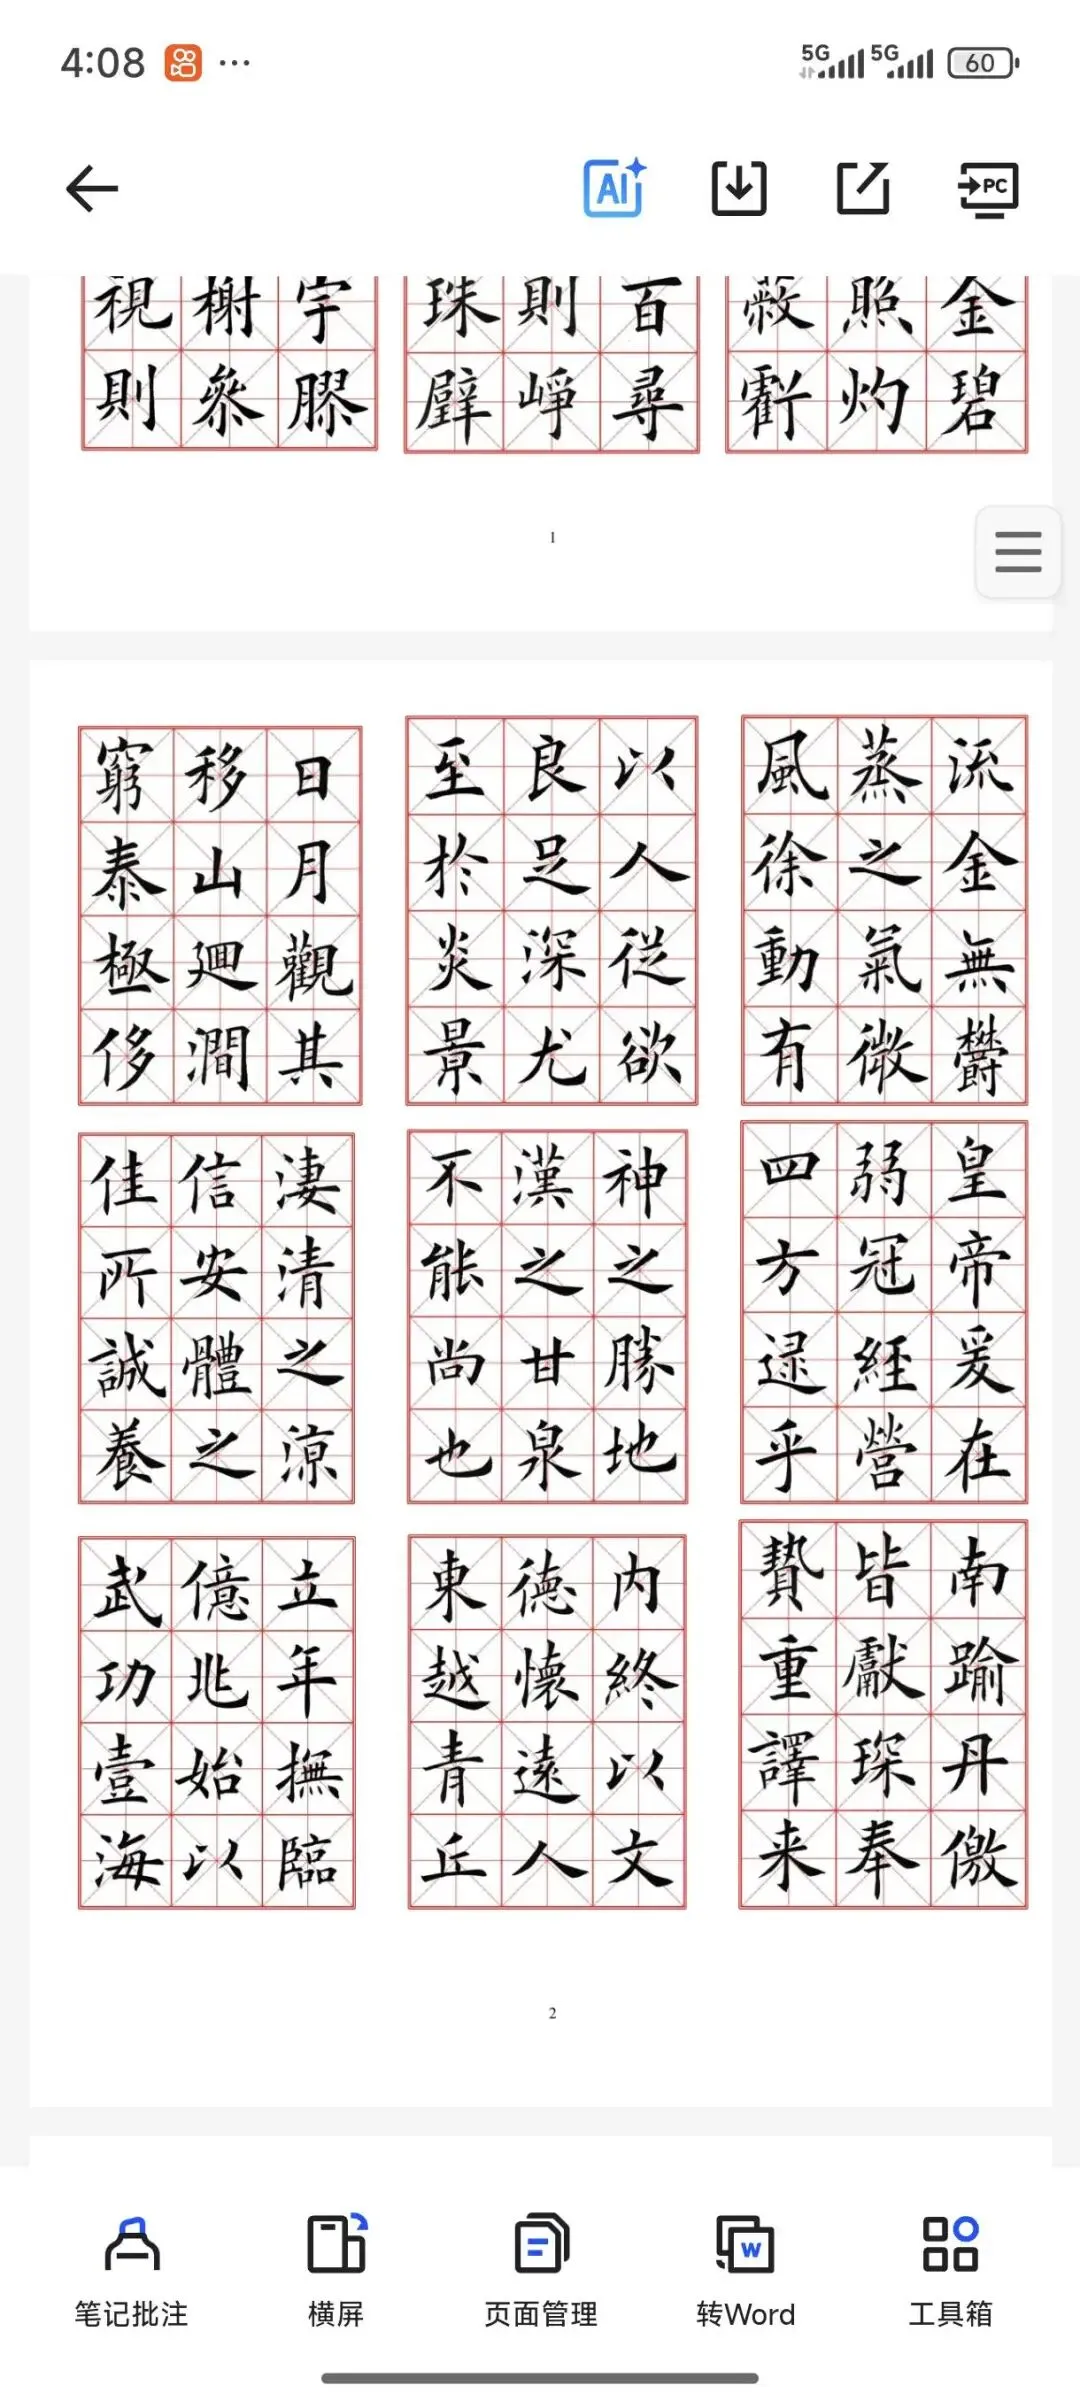 4:08
5G 5G 60
AI
PC
宇膠
榭叅
視則
百尋
則崢
珠璧
金碧
照灼
蔽虧
1
日月觀其
移山廻澗
窮泰極侈
以人從欲
良足深尤
至於炎景
流金無欝
蒸之氣微
風徐動有
淒清之涼
信安體之
佳所誠養
神之勝地
漢之甘泉
不能尚也
皇帝爰在
弱冠經營
四方逮乎
立年撫臨
億兆始以
武功壹海
内終以文
德懷遠人
東越青丘
南踰丹儌
皆獻琛奉
贄重譯来
2
笔记批注
横屏
页面管理
W
转Word
工具箱